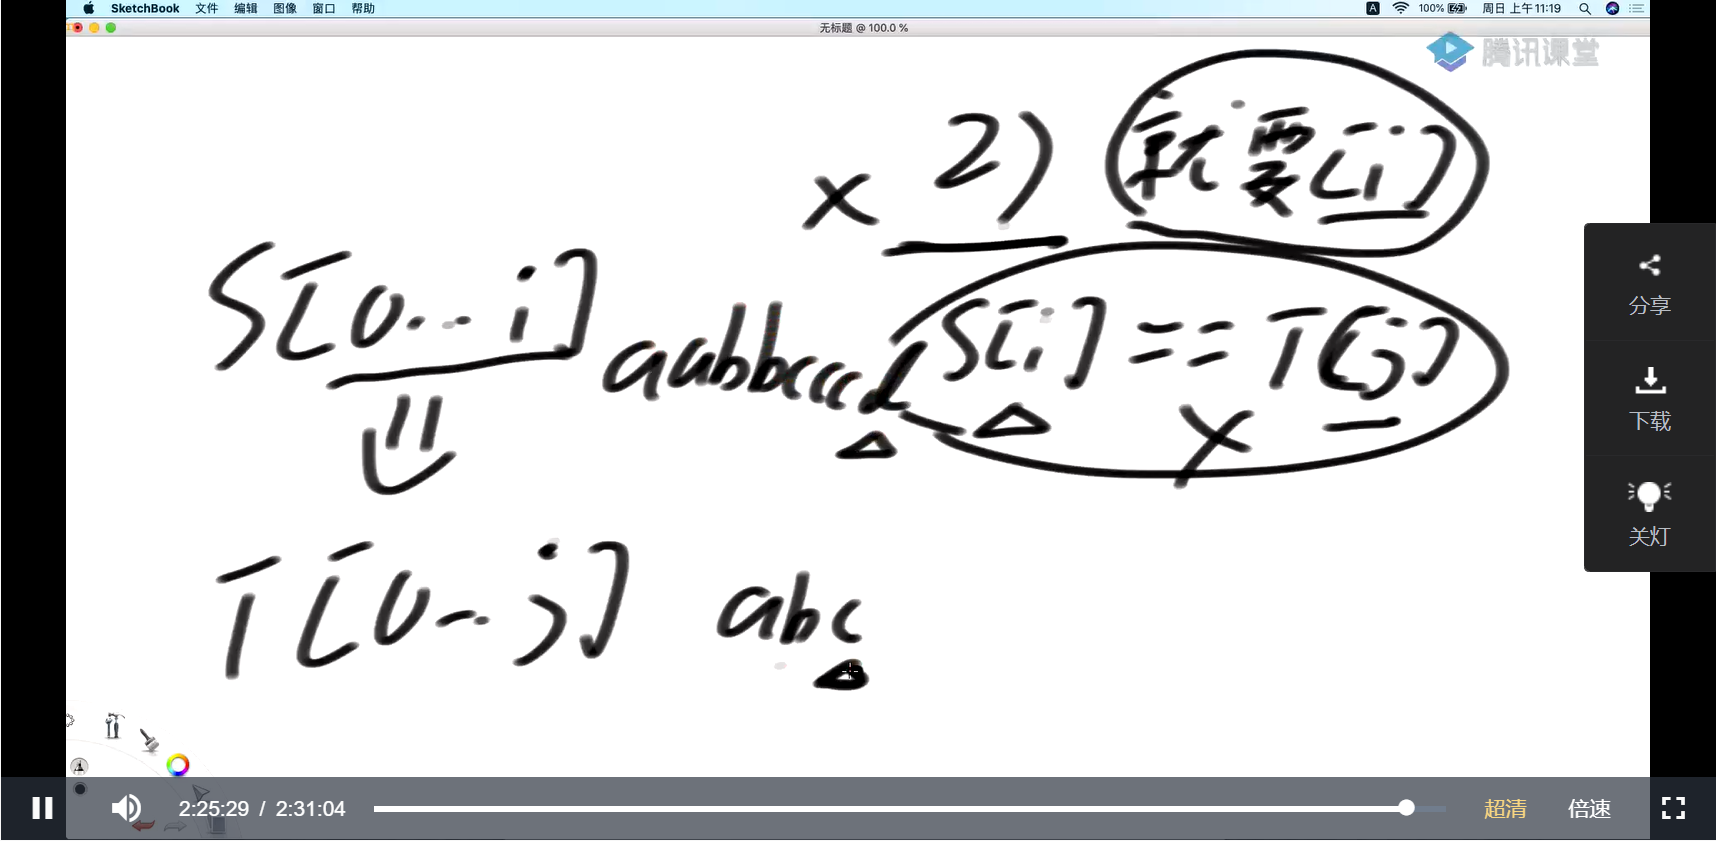 SketchBook 文件 编辑 图像 窗口 帮助
A 100% 周日 上午11:19
无标题 @ 100.0 %
腾讯课堂
x 2) 就要[i]
S[0..i] aabbcccd S[i]==T[j]
x
T[0..j] abc
分享
下载
关灯
2:25:29 / 2:31:04 超清 倍速